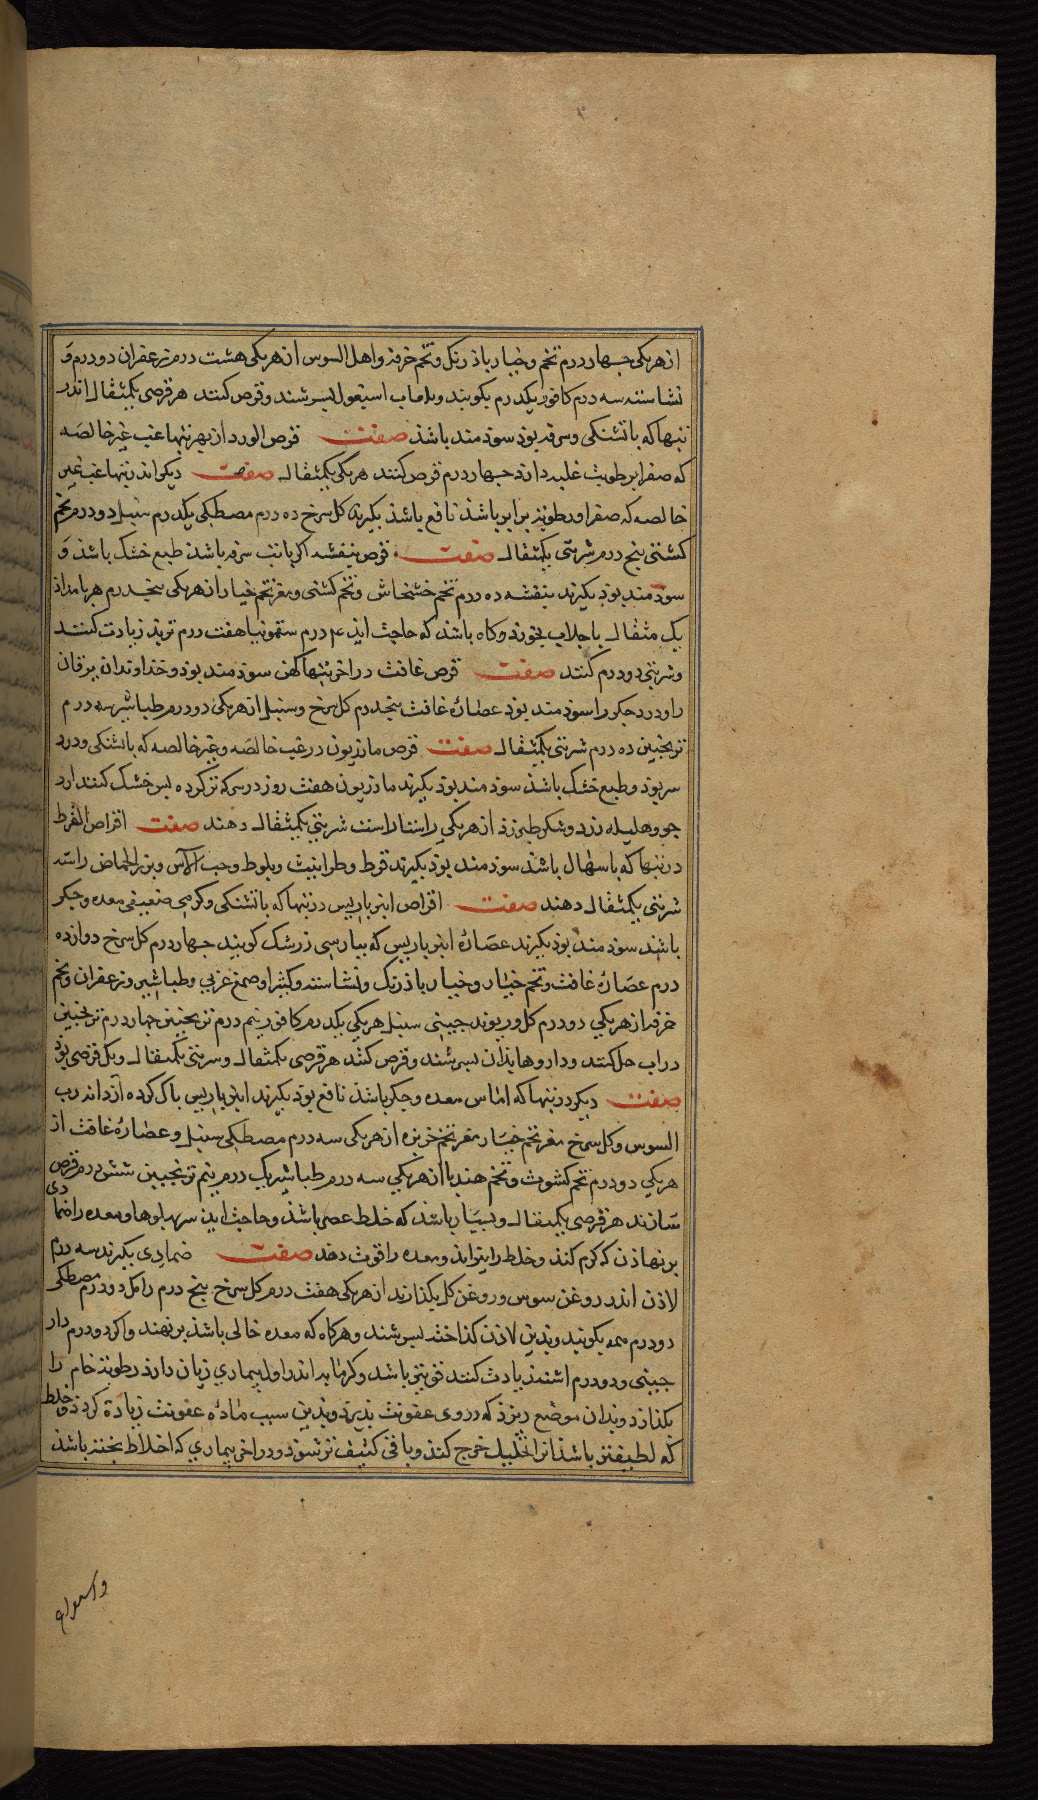 از هریکی جهار درم تخم و خیار باذرنک و تخم خرفه واهل السوس از هریکی هشت درم زعفران دو درم وَ
نشاسته سه درم کافور یکدرم بکوبند وبلعاب اسبغول بسرشند وقرص کنند هر قرصی یکمثقال اندر
تبها که با تشنکی وسرفه بوذ سوذمند باشذ صفت قرص الورد از بهر تبها غب غیر خالصَه
که صفرا بر طوبت غلبه دارد جهار درم قرص کنند هریکی یکمثقال صفت دیکر اندر تبها غب غیر
خالصه که صفرا و رطوبت برابر باشذ نافع باشذ بکیرند کل سرخ ده درم مصطکی یکدرم سنبل دو درم تخم
کشنی بنج درم شربتی یکمثقال صفت قرص بنفشه اکر باتب سرفه باشذ طبع خشک باشذ وَ
سوذمند بوذ بکیرند بنفشه ده درم تخم خشخاش و تخم کشنی ومغز تخم خیار از هریکی بنجدرم هر بامداذ
یک مثقال با جلاب بخورند وکاه باشذ که حاجت ایذ ۴ درم سقمونیا هفت درم تربذ زیادت کنند
وشربتی دو درم کنند صفت قرص غافث در اخر تبها کهن سوذمند بوذ وخداوندان یرقان
را ودرد جکر را سوذمند بوذ عصارهٔ غافث بنجدرم کل سرخ وسنبل از هریکی دو درم طباشیر سه درم
ترنجبین ده درم شربتی یکمثقال صفت قرص مازریون در غب خالصَه وغیر خالصه که با تشنکی ودرد
سر بوذ وطبع خشک باشذ سوذمند بوذ بکیرند مازریون هفت روز در سرکه تر کرده بس خشک کنند ارد
جو وهلیله زرد وشکر طبرزذ از هریکی راستاراست شربتی یکمثقال دهند صفت اقراص القرط
در تبها که با سهال باشذ سوذمند بوذ بکیرند قرط وطراثیث وبلوط وحب الآس وبزر الحماض راسته
شربتی یکمثقال دهند صفت اقراص انبرباریس در تبها که با تشنکی وکرمی ضعیفی معده وجکر
باشذ سوذمند بوذ بکیرند عصَارهٔ انبرباریس که ببارسی زرشک کویند جهار درم کل سرخ دوازده
درم عصَارهٔ غافث و تخم خیار و خیار باذرنک ونشاسته وکثیرا وصمغ عربی وطباشیر وزعفران وتخم
خرفه از هریکی دو درم کل وریوند جینی سنبل هریکی یکدرم کافور نیم درم ترنجبین جهار درم ترنجبین
در اب حل کنند وداروها بذان بسرشند وقرص کنند هر قرصی یکمثقال وشربتی یکمثقال ویک قرصی بوذ
صفت دیکر در تبها که اماس معده وجکر باشذ نافع بوذ بکیرند انبرباریس باک کرده از دانه رب
السوس وکل سرخ مغز تخم خیَار مغز تخم خربزه از هریکی سه درم مصطکی سنبل وعصارهٔ غافث از
هریکی دو درم تخم کشوث و تخم هندبا از هریکی سه درم طباشیر یک درم ینم ترنجبین شش درم قرص
سَازند هر قرصی یکمثقال وبسیَار باشذ که خلط عصی باشذ وحاجت ایذ سر بهلوها ومعده را ضمادی
برنهاذن که کرم کنذ وخلط را بتراند ومعده را قوت دهد صفت ضمادی بکیرند سه درم
لاذن اندر روغن سوس وروغن کل بکذازند از هریکی هفت درم کل سرخ بنج درم رامک دو درم مصطکی
دو درم همه بکوبند وبذین لاذن کداخته بسرشند وهر کاه که معده خالی باشذ برنهند واکر دو درم دار
جینی ودو درم اشنه زیادت کنند قوی تر باشد وکرمابه اندر اول بیماری زیان دارذ رطوبت خام را
بکذازد وبدان موضع ریزذ که در وی عفونت بذیرذ وبذین سبب مادهٔ عفونت زیادة کردذ وخلط
که لطیفتر باشذ انرا تحلیل خرج کنذ وباقی کثیف تر شوذ ودر اخر بیماری که اخلاط بخته باشذ